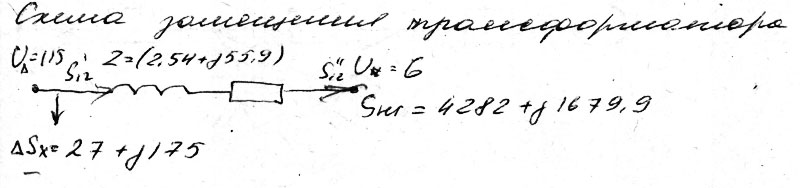 Схема замещения трансформатора
U_Δ=115 S'₁₂ Z=(2,54+j55,9) S''₁₂ Uₓ=6
Sнг = 4282+j1679,9
ΔSx=27+j175